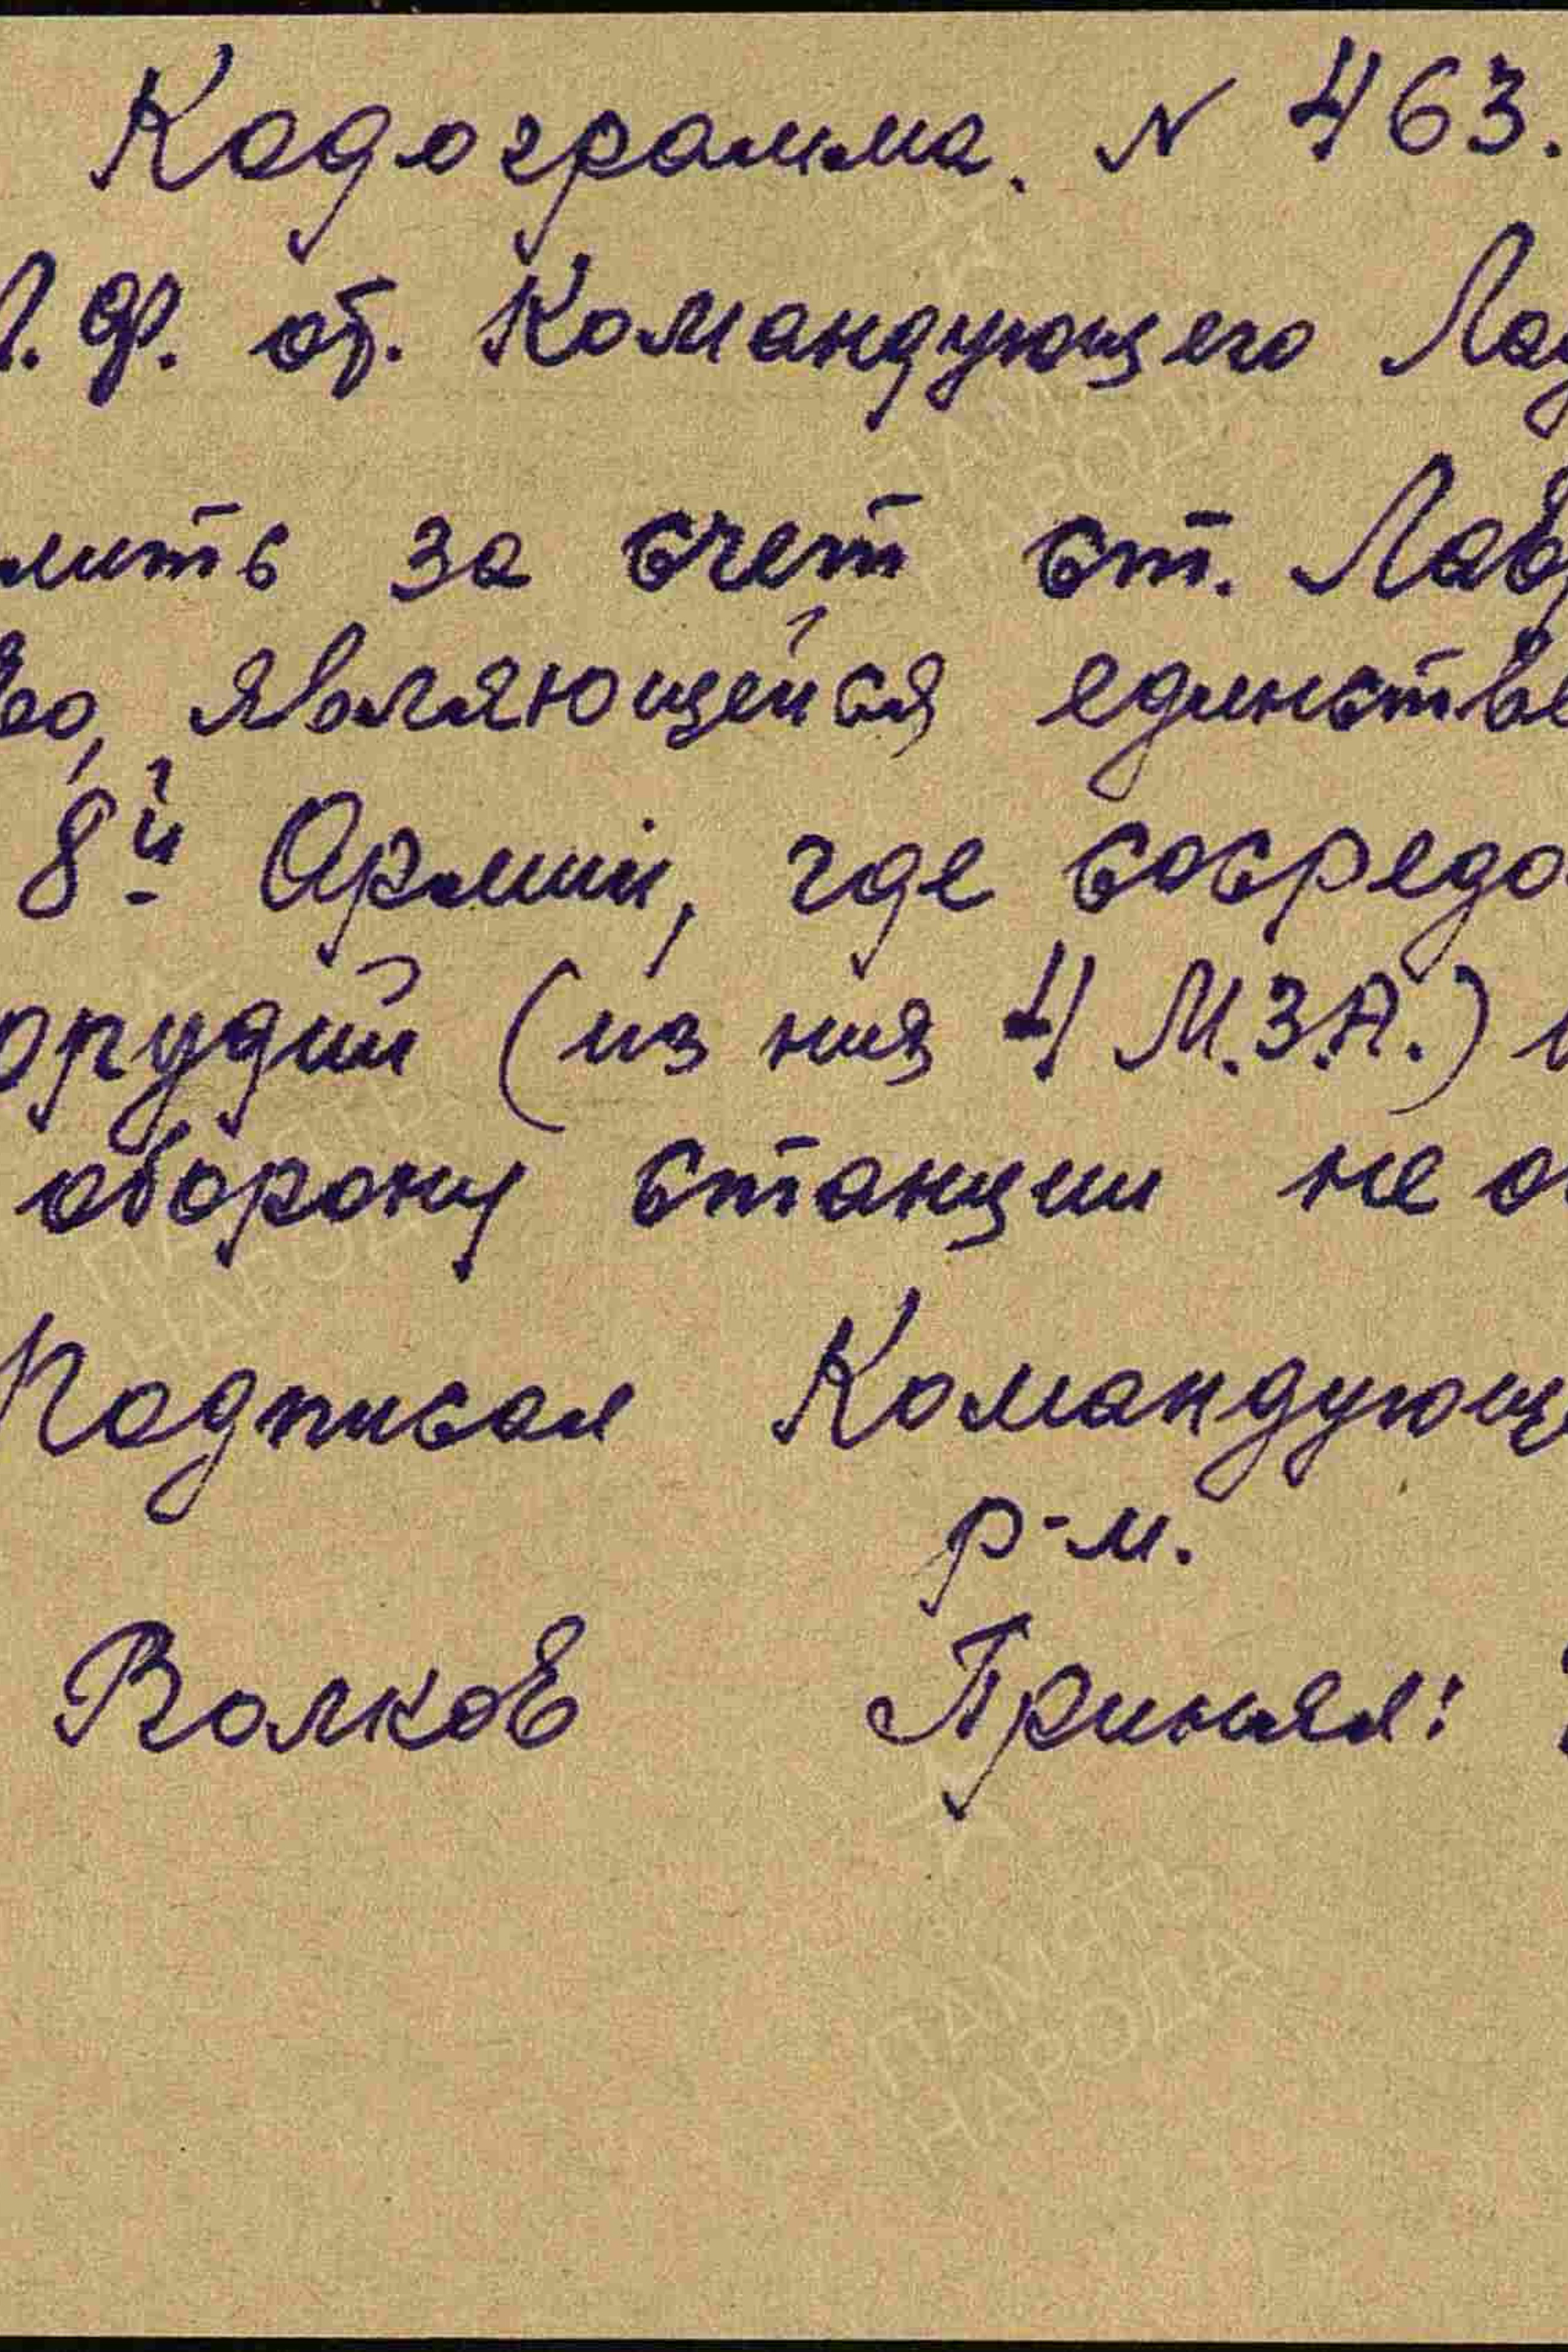 Кодограмма. № 463.
Л.Ф. от. Командующего Лад
лить за счет ст. Лавр
во, являющейся единстве
8й Армии, где сосредо
орудий (из них 4 М.З.А.)
оборону станции не о
Подписал Командующ
р-м.
Волков Принял:
ПАМЯТЬ
НАРОДА